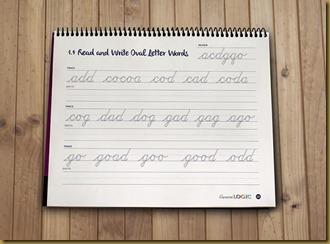 REVIEW
1.9 Read and Write Oval Letter Words
acdggo
TRACE
add cocoa cod cad coda
WRITE
TRACE
cog dad dog gad gag ago
WRITE
TRACE
go goad goo good odd
WRITE
CursiveLOGIC